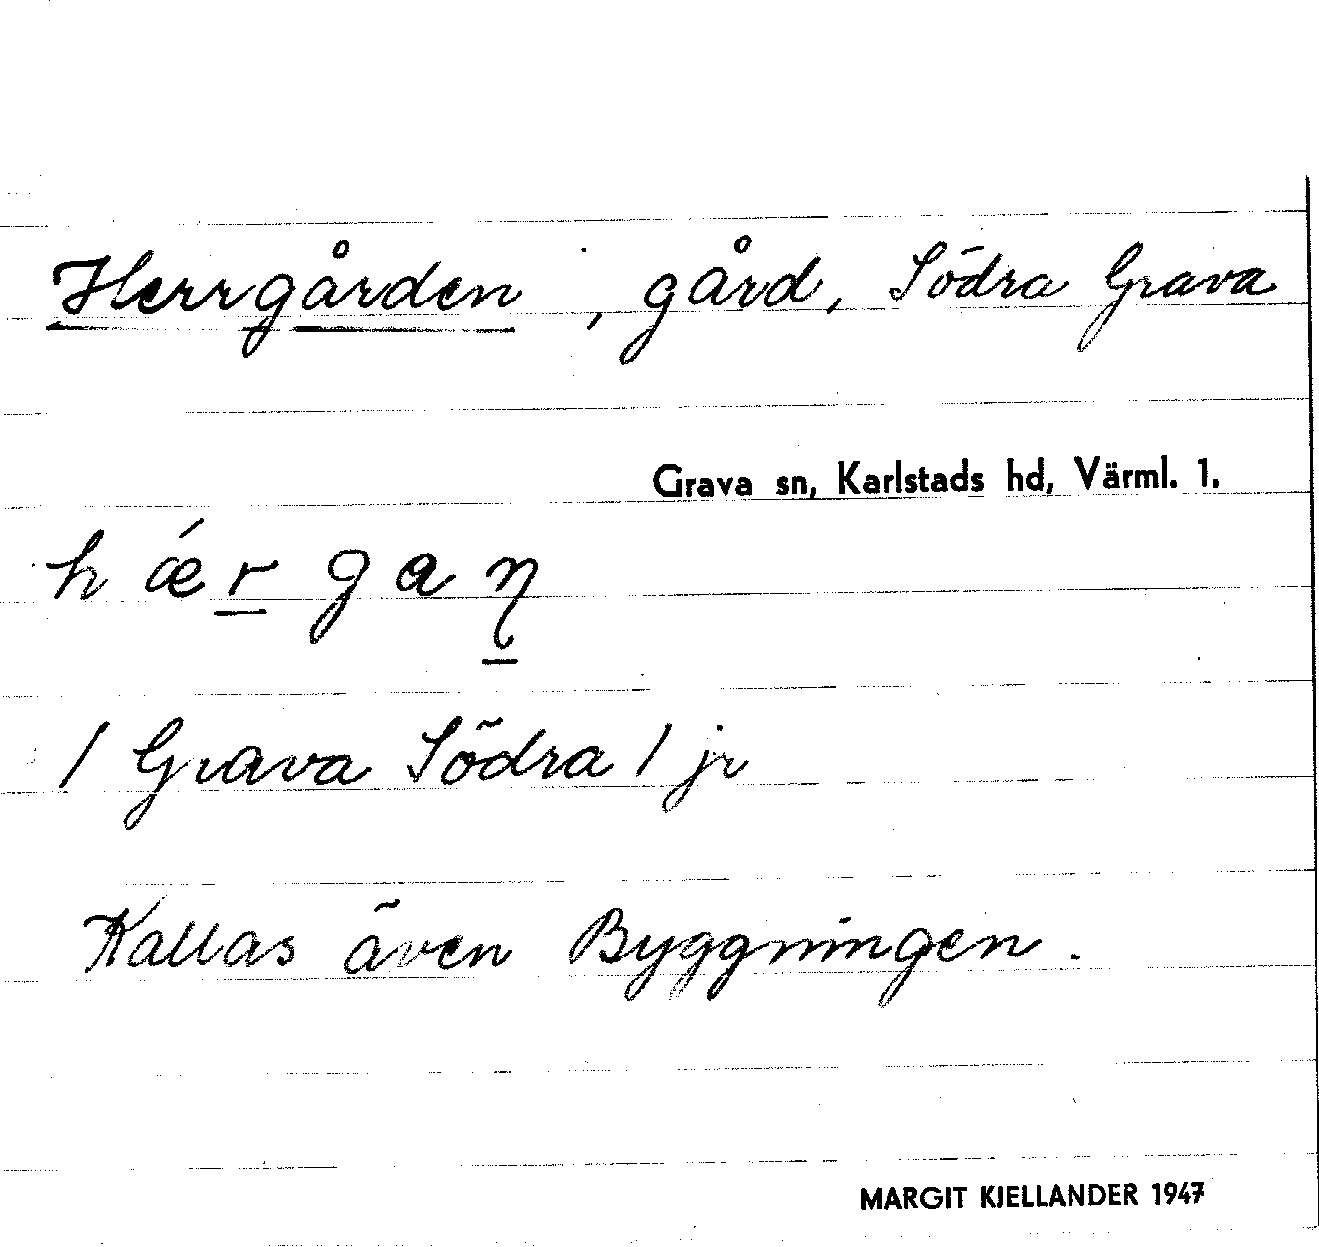 Herrgården, gård, Södra Grava
Grava sn, Karlstads hd, Värml. 1.
hǽrgaɳ
/ Grava Södra / jr
Kallas även Byggningen.
MARGIT KJELLANDER 1947